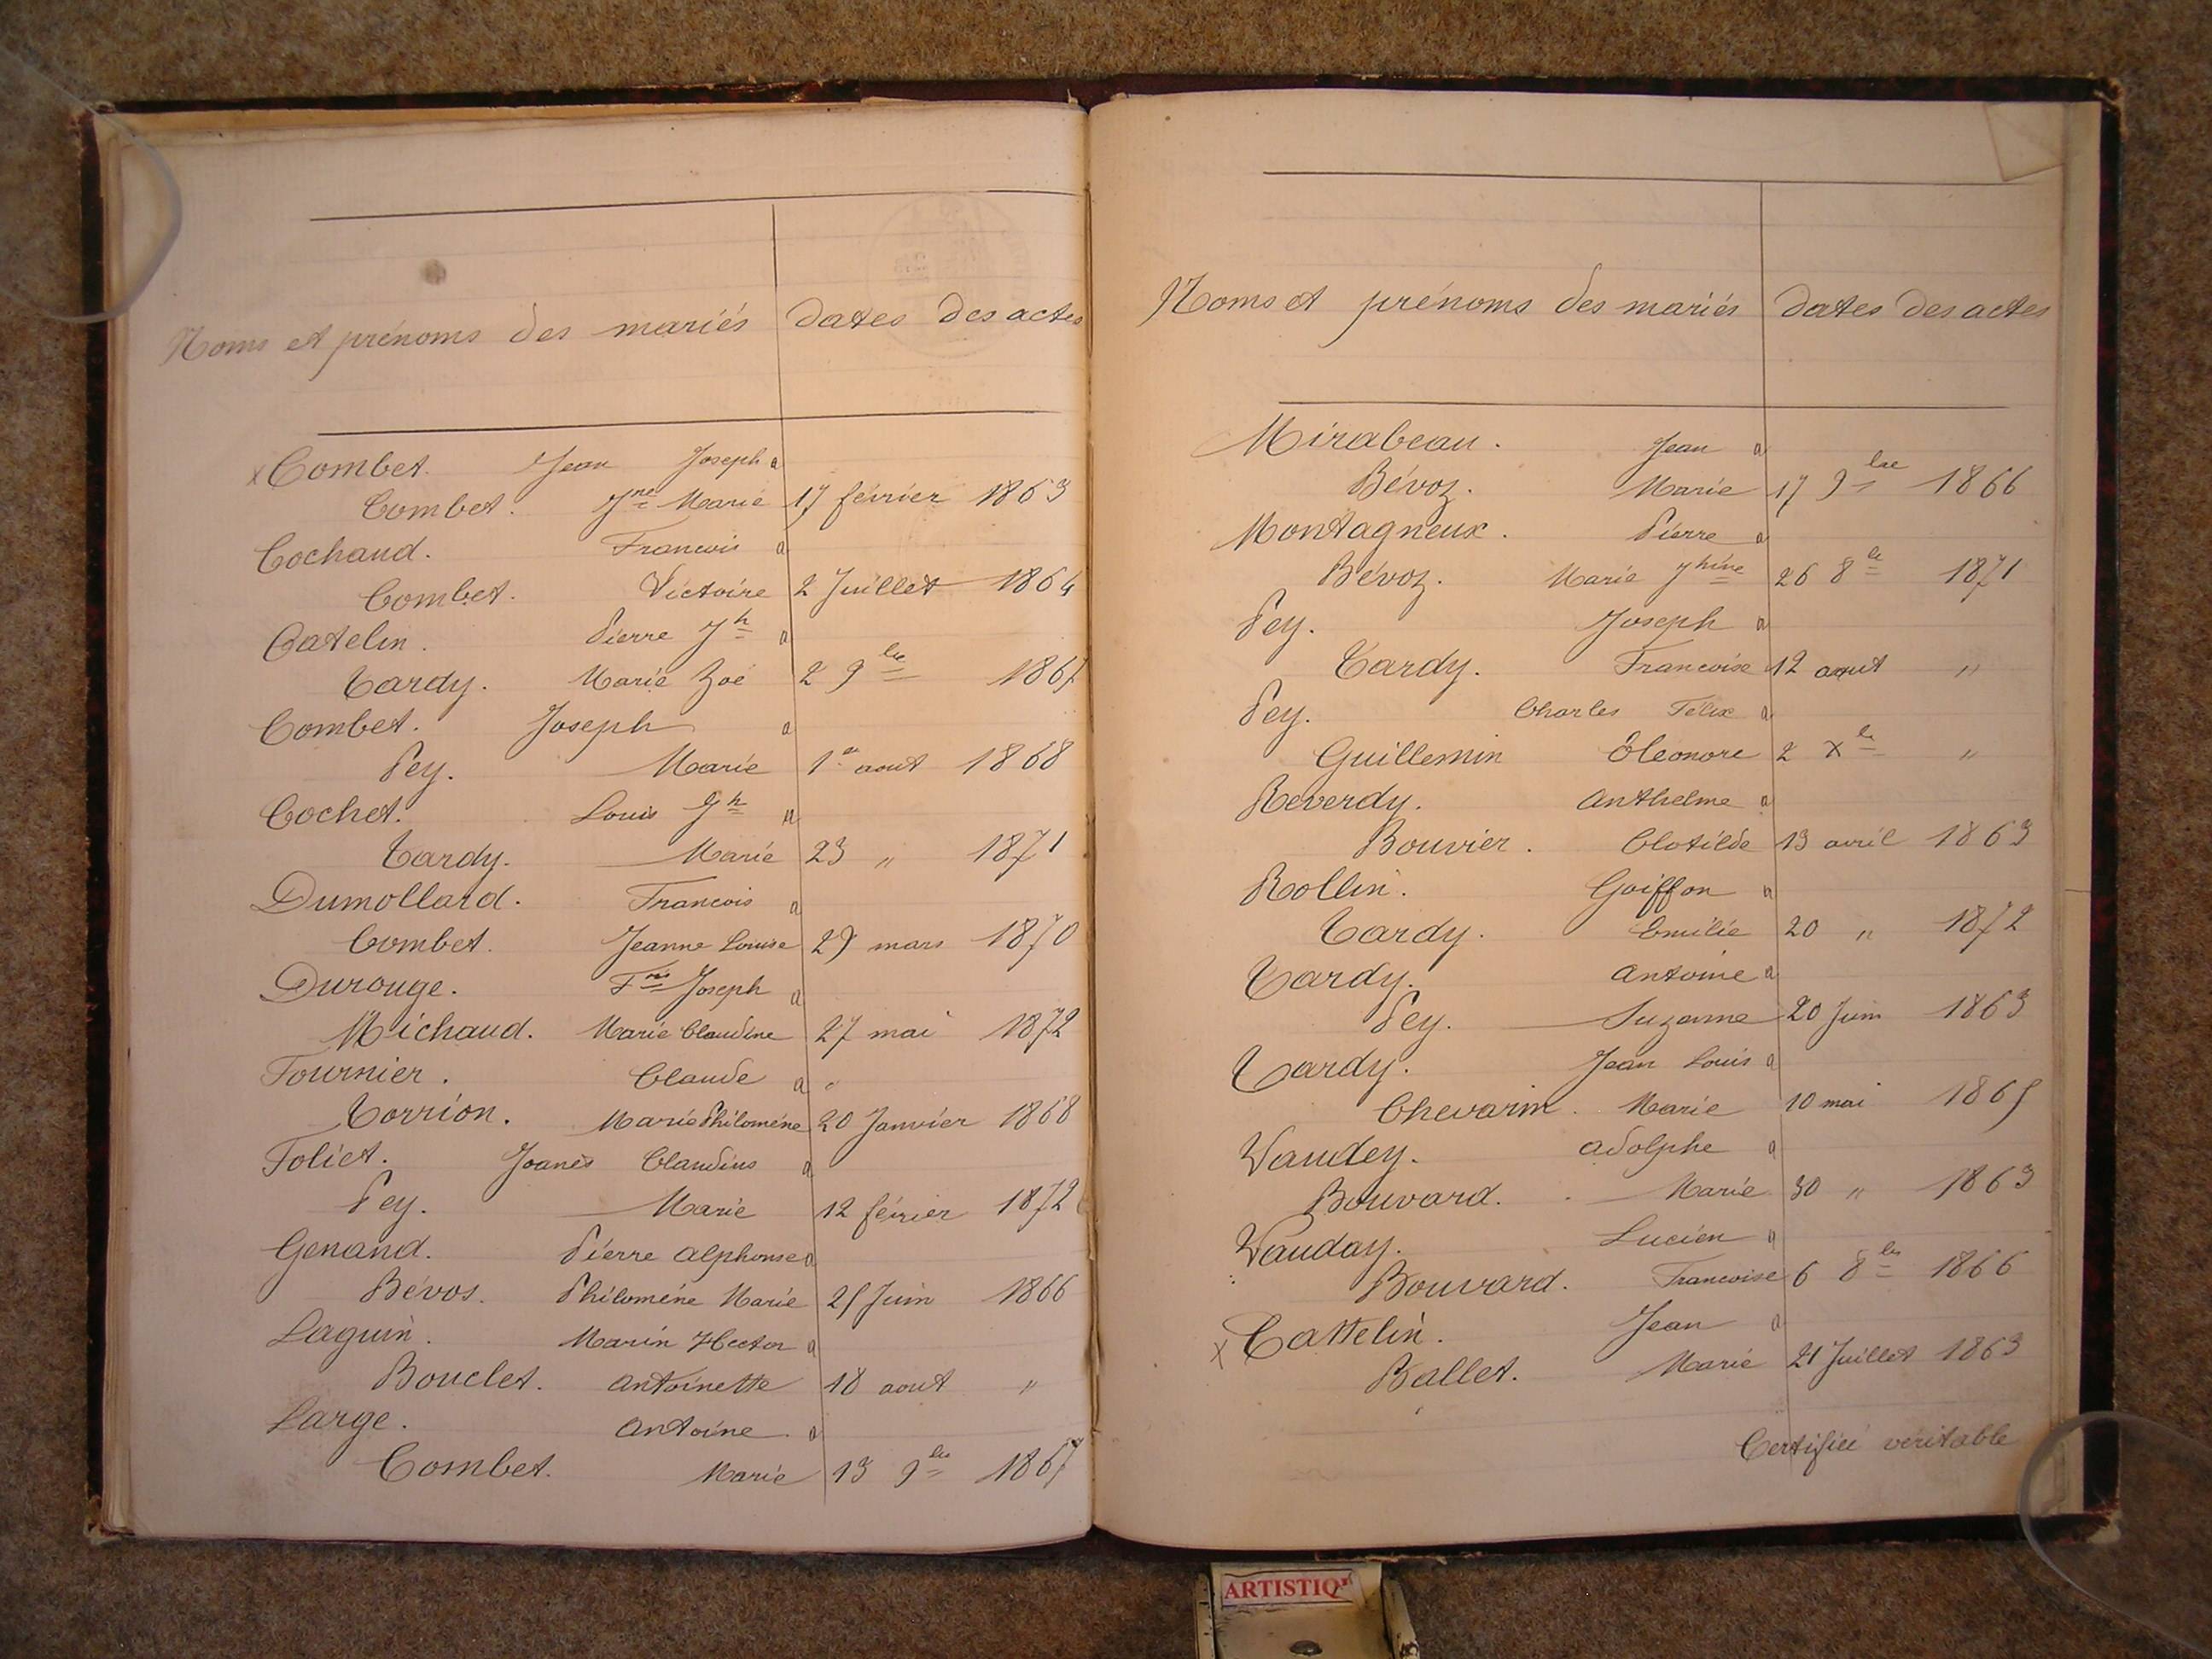 Noms et prénoms des mariés dates des actes
x Combet. Jean Joseph a
Combet. Jne Marie 17 février 1863
Cochaud. Francois a
Combet. Victoire 2 Juillet 1864
Catelin. Pierre Jh a
Tardy. Marie Zoé 2 9bre 1867
Combet. Joseph a
Pey. Marie 1er aout 1868
Cochet. Louis Jh a
Tardy. Marie 23 " 1871
Dumollard. Francois a
Combet. Jeanne Louise 29 mars 1870
Durouge. Fois Joseph a
Michaud. Marie Claudine 27 mai 1872
Fournier. Claude a "
Torrion. Marie Philomène 20 Janvier 1868
Foliet. Joanès Claudius a
Pey. Marie 12 février 1872
Genand. Pierre alphonse a
Bévos. Philomène Marie 25 Juin 1866
Laguin. Marin Hector a
Bouclet. antoinette 18 aout "
Large. antoine a
Combet. Marie 13 9bre 1867
Noms et prénoms des mariés dates des actes
Mirabeau. Jean a
Bévoz. Marie 17 9bre 1866
Montagneux. Pierre a
Bévoz. Marie Jhine 26 8bre 1871
Pey. Joseph a
Tardy. Francoise 12 aout "
Pey. Charles Felix a
Guillemin Éleonore 2 Xbre "
Reverdy. anthelme a
Bouvier. Clotilde 13 avril 1863
Rollin. Goiffon a
Tardy. Emilie 20 " 1872
Tardy. antoine a
Pey. Suzanne 20 Juin 1863
Tardy. Jean Louis a
Chevarin. Marie 10 mai 1865
Vaudey. adolphe a
Bouvard. Marie 30 " 1863
Vauday. Lucien a
Bouvard. Francoise 6 8bre 1866
x Cattelin. Jean a
Ballet. Marie 21 Juillet 1863
Certifiée véritable
ARTISTIQ